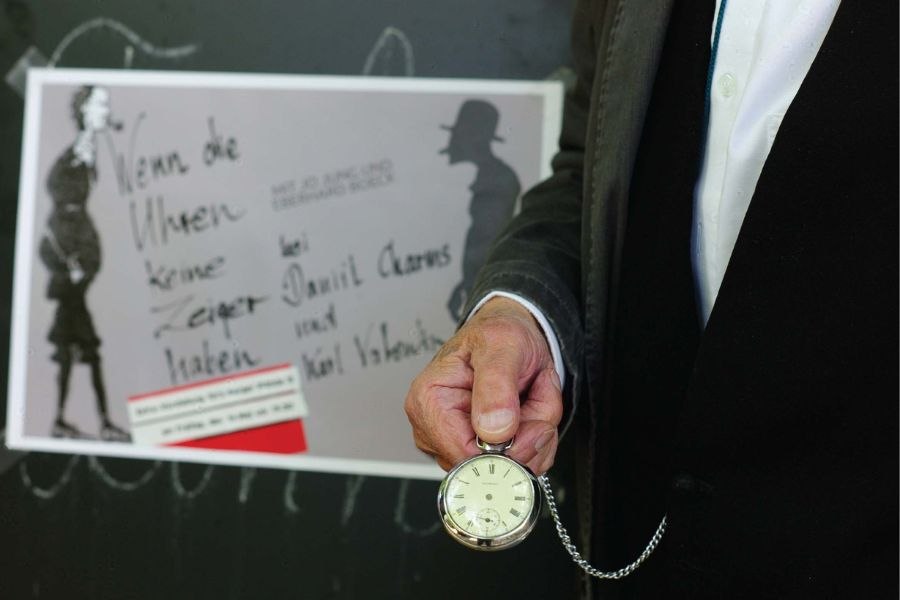 Wenn die
Uhren
keine
Zeiger
haben
MIT JO JUNG UND
EBERHARD BOECK
bei
Daniil Charms
und
Karl Valentin
am Freitag, den